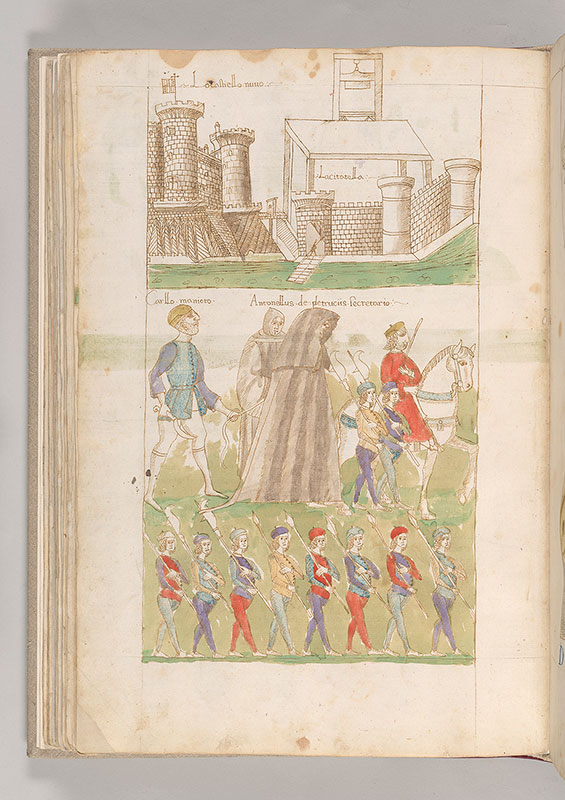 Lo castello nuovo
La citatella
Carllo manioto
Antonellus de petruciis secretario